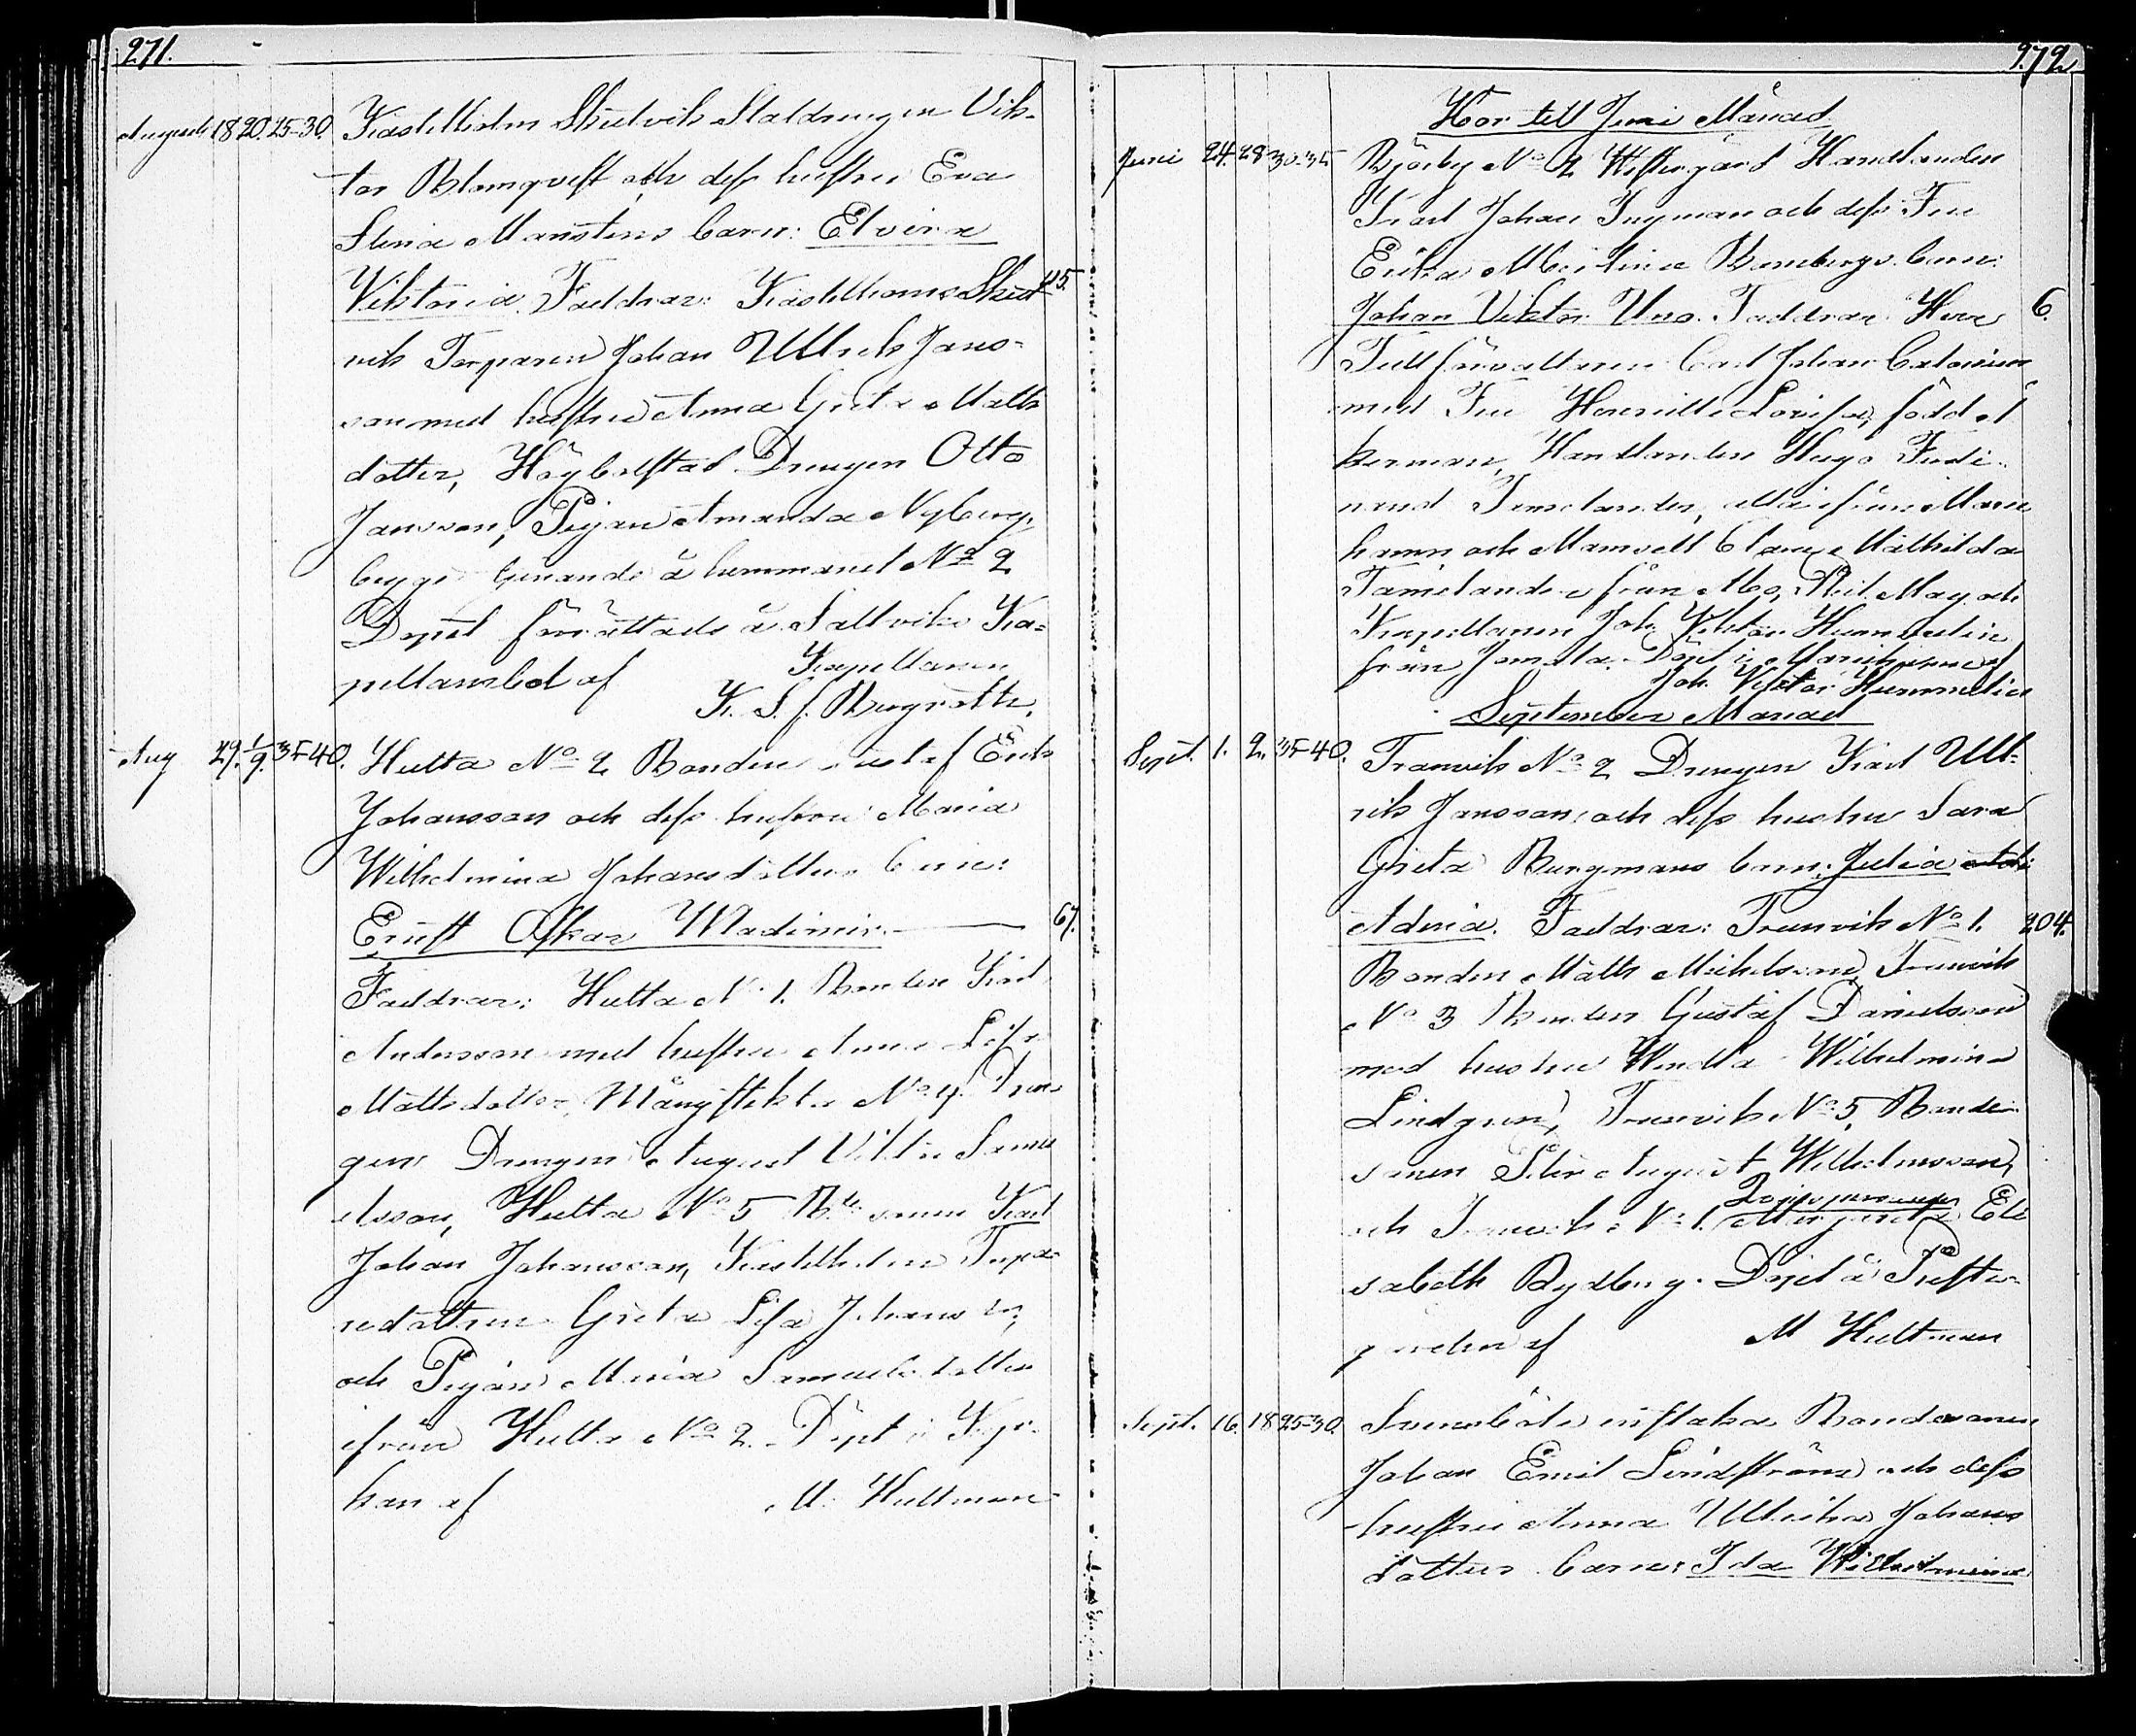 271.
Augusti 18 20. 25-30. Kastelholm Skutvik Staldrengen Vik-
tor Blomqvist och dess hustru Eva
Stina Manstens barn: Elvira
Viktoria. Faddrar: Kastelholms Skut 115.
vik Torparen Johan Ullrik Jans-
son med hustru Anna Greta Matts
dotter, Högbolstad Drengen Otto
Jansson, Pigan Amanda Nyberg,
begge tjenande å hemmanet No 2
Dopet förrättade å Saltviks Ka-
pellansbol af Kapellanen
K. S. J. Bergroth.
Aug 29. 1/9. 35-40. Hulta No 2 Bonden Gustaf Erik
Johansson och dess hustru Maria
Wilhelmina Johansdotters barn:
Ernst Oskar Wladimir. 67.
Faddrar: Hulta No 1. Bonden Karl
Andersson med hustru Anna Lisa
Mattsdotter, Mångstekta No 4. Dren-
gen Drengen August Viktor Samu
elsson, Hulta No 5 Bde sonen Karl
Johan Johansson, Kastelholm Torpa-
redottren Greta Lisa Johans dr,
och Pigan Maria Samuelsdotter
ifrån Hulta No 2. Döpt i Kyr-
kan af M. Hultman
272
Hör till Juni Månad
Juni 24. 28 30-35 Björby No 2 Westergård Handlanden
Karl Johan Ingman och dess Fru
Erika Albertina Rambergs barn:
Johan Viktor Uno. Faddrar: Herr 6.
Tullförvaltaren Carl Johan Calonius
med Fru Henriette Lovisa, född Å
kerman, Handlanden Hugo Ferdi-
nand Tamelander, alla ifrån Marie
hamn och Mamsell Clara Mathilda
Tamelander från Åbo, Phil. Mag. och
Kapellanen Joh. Viktor Hummelin
från Jomala. Döpt i Mariehamn af
Joh. Viktor Hummelin
September Månad
Sept. 1. 2. 35-40. Tranvik No 2 Drengen Karl Ull-
rik Jansson och dess hustru Sara
Greta Bergmans barn: Julia
Adina. Faddrar: Tranvik No 1. 204.
Bonden Matts Mickelsson, Tranvik
No 3 Bonden Gustaf Danielsson
med hustru Wendla Wilhelmina
Lindgren, Tranvik No 5, Bonde-
sonen Petter August Wilhelmsson,
och Tranvik No 1. Margareta Eli
sabeth Rydberg. Döpt å Prest-
gården af M Hultman
Sept. 16. 18 25-30. Sonnböle enstaka Bondesonen
Johan Emil Lindström och dess
hustru Anna Ullrika Johans
dotters barn: Ida Wilhelmina